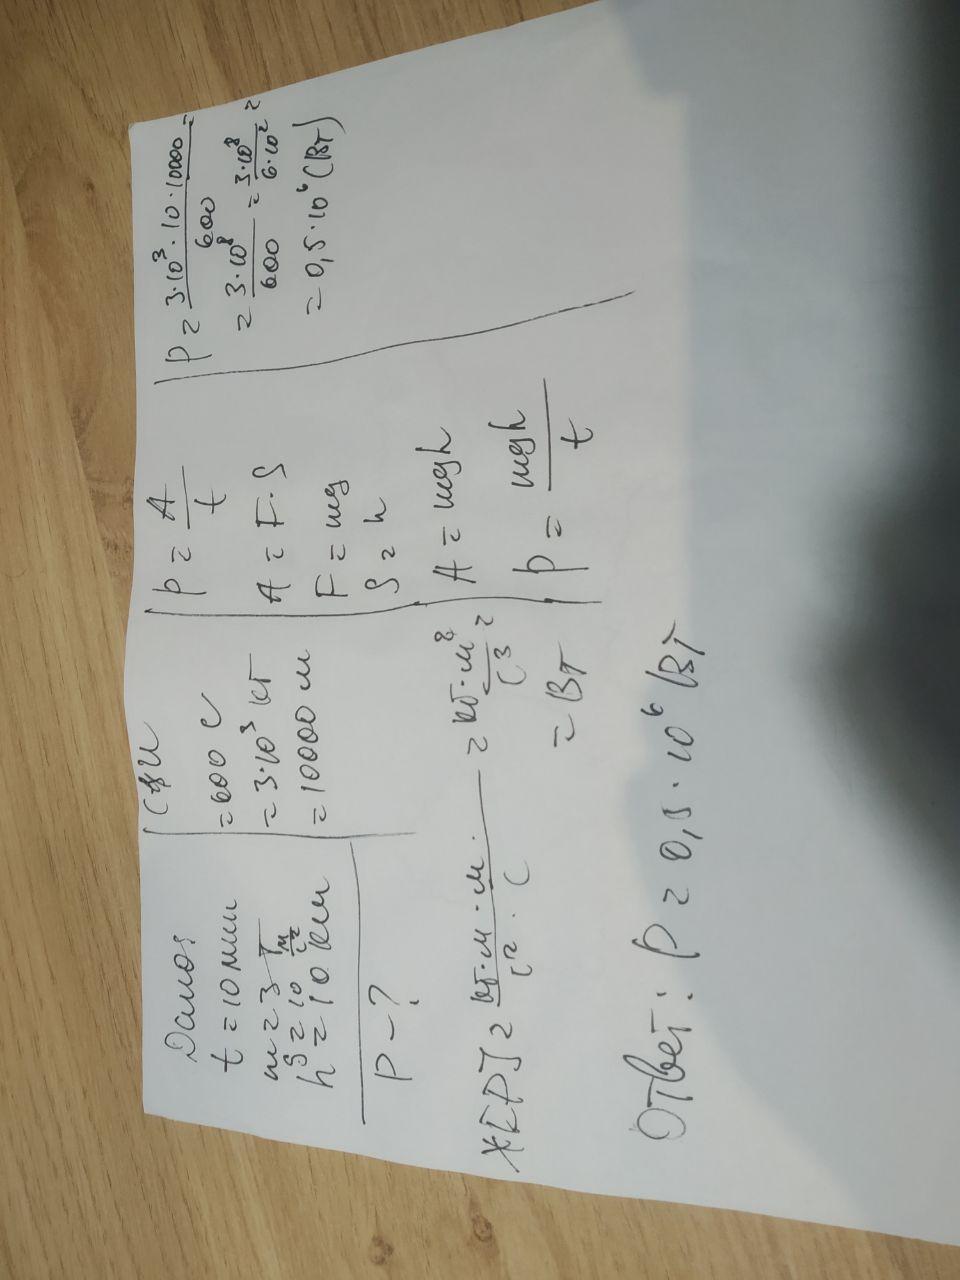 Дано:
t = 10 мин
m = 3 т
g = 10 м/с²
h = 10 км
P - ?
СИ
= 600 с
= 3·10³ кг
= 10000 м
P = A/t
A = F·S
F = mg
S = h
A = mgh
P = mgh/t
P = 3·10³·10·10000/600 =
= 3·10⁸/600 = 3·10⁸/6·10² =
= 0,5·10⁶ (Вт)
*[P] = кг·м·м·/с²·с = кг·м²/с³ =
= Вт
Ответ: P = 0,5·10⁶ Вт